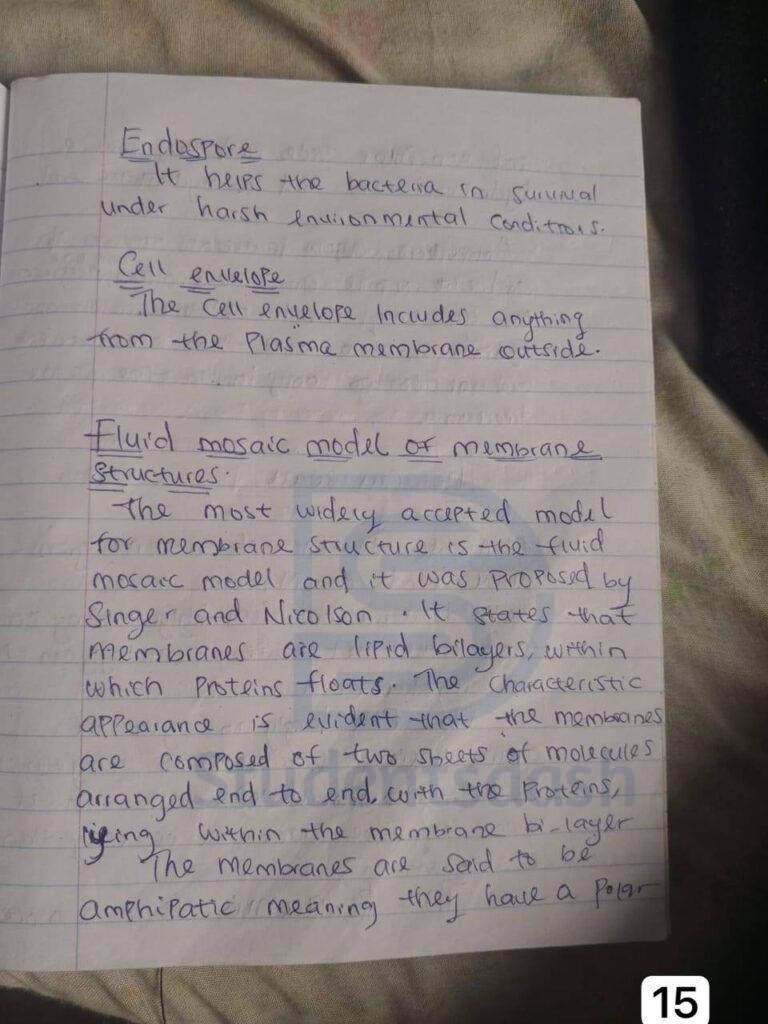 Endospore
It helps the bacteria in survival
under harsh environmental conditions.
Cell envelope
The Cell envelope Includes anything
from the Plasma membrane outside.
Fluid mosaic model of membrane
structures.
The most widely accepted model
for membrane structure is the fluid
mosaic model and it was proposed by
Singer and Nicolson. It states that
membranes are lipid bilayers, within
which Proteins floats. The characteristic
appearance is evident that the membranes
are composed of two sheets of molecules
arranged end to end, with the Proteins,
lying within the membrane bi-layer
The membranes are said to be
amphipatic meaning they have a Polar
Studentsdash
15